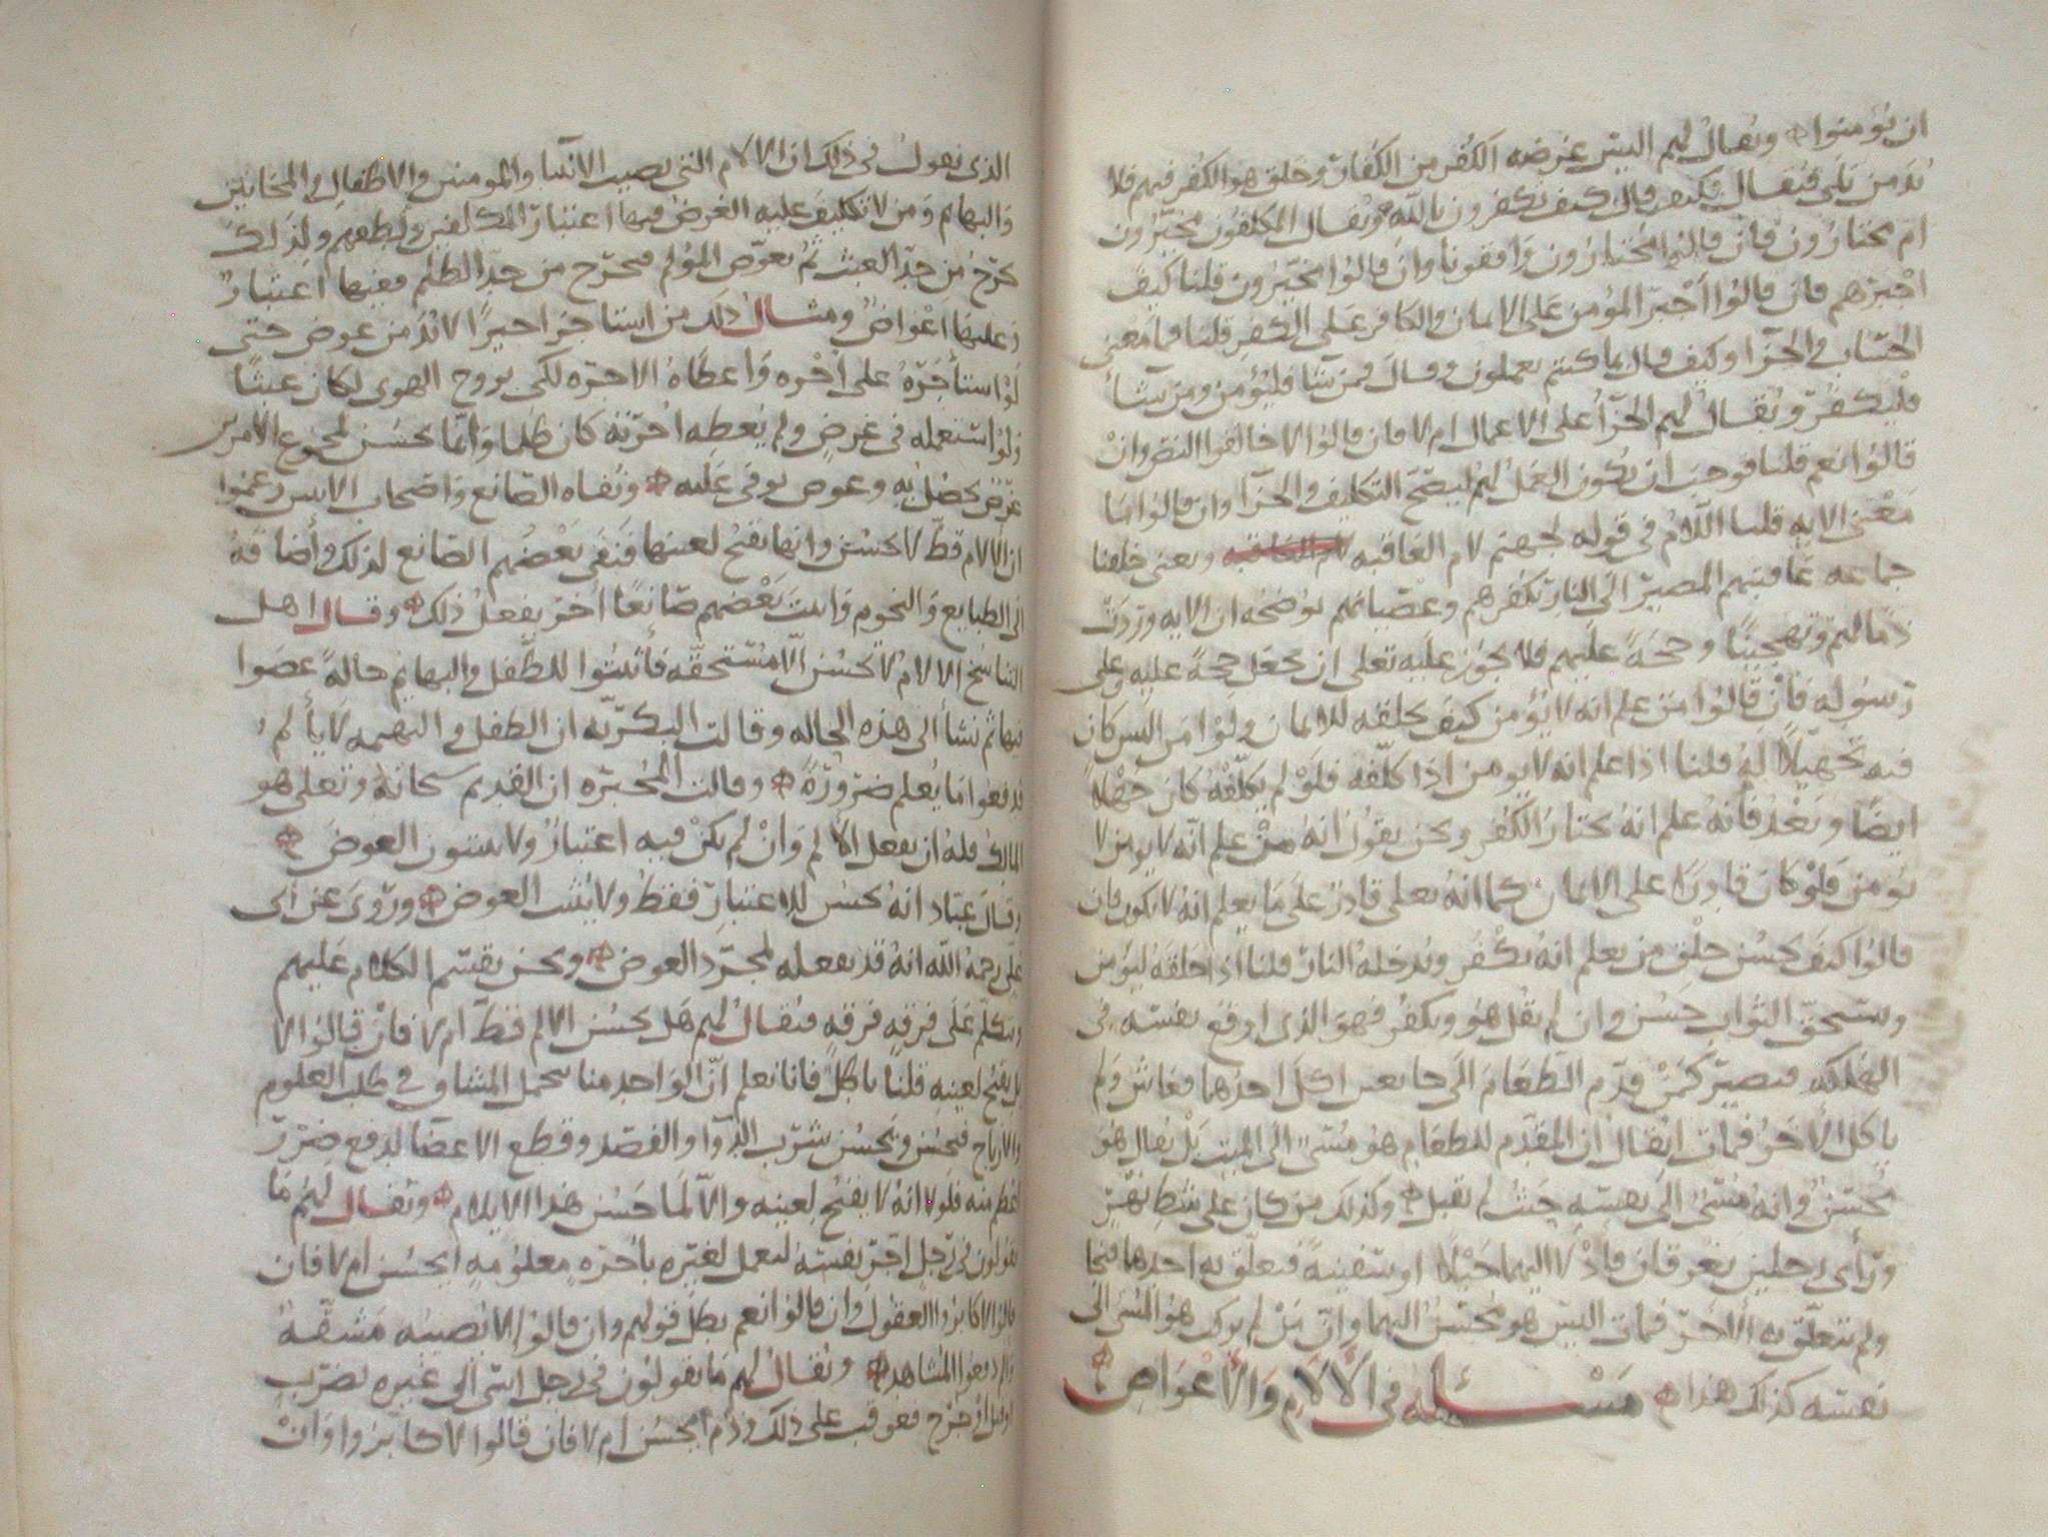 ان يؤمنوا ويقال لهم اليس غرضه الكفر من الكفار وخلق هو الكفر فيهم فلا
بد من بلى فيقال فكيف قال كيف تكفرون بالله ويقال المكلفون مجبرون
ام مختارون فان قالوا مختارون وافقونا وان قالوا مجبرون قلنا كيف
اجبرهم فان قالوا أجبر المؤمن على الايمان والكافر على الكفر قلنا فما معنى
الحساب والجزا وكيف قال بما كنتم تعملون وقال فمن شآ فليؤمن ومن شآء
فليكفر ويقال لهم الجزآ على الاعمال ام لا فان قالوا لا خالفوا النص وان
قالوا نعم قلنا فوجب ان يكون العمل لهم ليصح التكليف والجزآ وان قالوا ما
معنى الايه قلنا اللام في قوله لجهنم لام العاقبه ويعنى خلقنا
جماعه عاقبتهم المصير الى النار بكفرهم وعصيانهم يوضحه ان الايه وردت
ذما لهم وتهجينا وحجة عليهم فلا يجوز عليه تعلى ان يجعل حجة عليه وعلى
رسوله فان قالوا من علم انه لا يؤمن كيف يخلقه للايمان ولو امر اليس كان
فيه تجهيلا له قلنا اذا علم انه لا يومن اذا كلفه فلو لم يكلفه كان جهلا
ايضا وبعد فانه علم انه يختار الكفر ونحن نقول انه من علم انه لا يومن لا
يومن فلو كان قادرا على الايمان كما انه تعلى قادر على ما يعلم انه لا يكون فان
قالوا كيف يحسن خلق من يعلم انه يكفر ويدخله النار قلنا اذا خلقه ليؤمن
ويستحق الثواب حسن وان لم يقبل هو ويكفر فهو الذى اوقع نفسه فى
الهلكه فيصير كمن قدم الطعام الى جايعين اكل احدهما فعاش ولم
ياكل الاخر فمات ايقال ان المقدم للطعام هو مسئ الى الميت بل يقال هو
محسن وانه مسئ الى نفسه حيث لم يقبل وكذلك من كان على شط نهر
ورأى رجلين يغرقان فادلا اليهما حبلا او سفينة فتعلق به احدهما فنجا
ولم يتعلق به الاخر فمات اليس هو محسن اليهما وان من لم هو المسئ الى
نفسه كذلك هذا مسئله في الآلام والأعواض
الذى نقول فى ذلك ان الالام التى تصيب الانبيآ والمومنين والاطفال والمجانين
والبهايم ومن لا تكليف عليه الغرض فيها اعتبار المكلفين ولطفهم ولذلك
يخرج من حد العبث ثم يعوض المؤلم فيخرج من حد الظلم ففيها اعتبار
وعليها اعواض ومثال ذلك من استاجر اجيرا لا بد من عوض حتى
لو استأجره على اجره واعطاه الاجره لكى يروح الهوى لكان عبثا
ولو استعمله فى غرض ولم يعطه اجرته كان ظلما وانما يحسن لمجموع الامرين
غرض يحصل به وعوض يوفى عليه ونفاه الصانع واصحاب الاثنين زعموا
ان الالام قط لا تحسن وانها تقبح لعينها فنفى بعضهم الصانع لذلك وأضافه
الى الطبايع والنجوم واثبت بعضهم صانعا اخر يفعل ذلك وقال اهل
التناسخ الالام لا تحسن الا مستحقه فأثبتوا للطفل والبهايم حالة عصوا
فيها ثم نشأ الى هذه الحاله وقالت البكريه ان الطفل والبهيمه لا يألم
فدفعوا ما يعلم ضرورة وقالت المجبره ان القديم سبحانه وتعلى هو
المالك فله ان يفعل الألم وان لم يكن فيه اعتبار ولا يثبتون العوض
وقال عباد انه يحسن للاعتبار فقط ولا يثبت العوض وروى عن ابى
على رحمه الله انه قد يفعله لمجرد العوض ونحن نقسم الكلام عليهم
ونتكلم على فرقه فرقه فيقال لهم هل يحسن الالم قط ام لا فان قالوا لا
بل يقبح لعينه قلنا باطل فانا نعلم ان الواحد منا يتحمل المشاق في طلب العلوم
والارباح فيحسن ويحسن شرب الدوآ والفصد وقطع الاعضا لدفع ضرر
اعظم منه فلولا انه لا يقبح لعينه والا لما حسن هذا الايلام ويقال لهم ما
تقولون فى رجل اجر نفسه ليعمل لغيره باجره معلومه ايحسن ام لا فان
قالوا لا كابروا العقول وان قالوا نعم بطل قولهم وان قالوا لا يصيبه مشقه
والم دفعوا المشاهد ويقال لهم ما تقولون في رجل اسآ الى غيره بضرب
او قتل او جرح فعوقب على ذلك وذم ايحسن ام لا فان قالوا لا كابروا وان